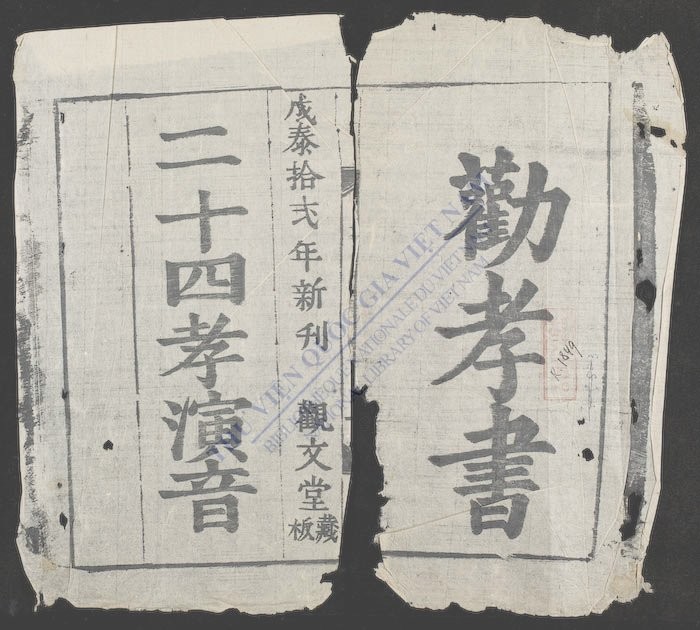 勸孝書
成泰拾弍年新刊 觀文堂藏板
二十四孝演音
R.1849
THƯ VIỆN QUỐC GIA VIỆT NAM
BIBLIOTHÈQUE NATIONALE DU VIETNAM
NATIONAL LIBRARY OF VIETNAM